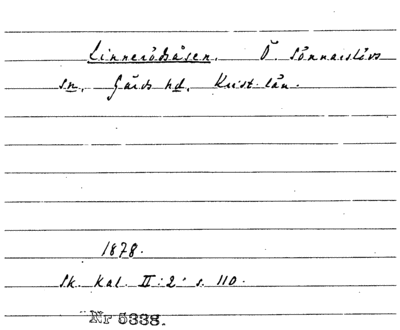 Linnerödsåsen. Ö. Sönnarslövs
sn. Gärds hd. Krist. län.
1878.
Sk. Kal. II:2 s. 110.
Nr 5338.